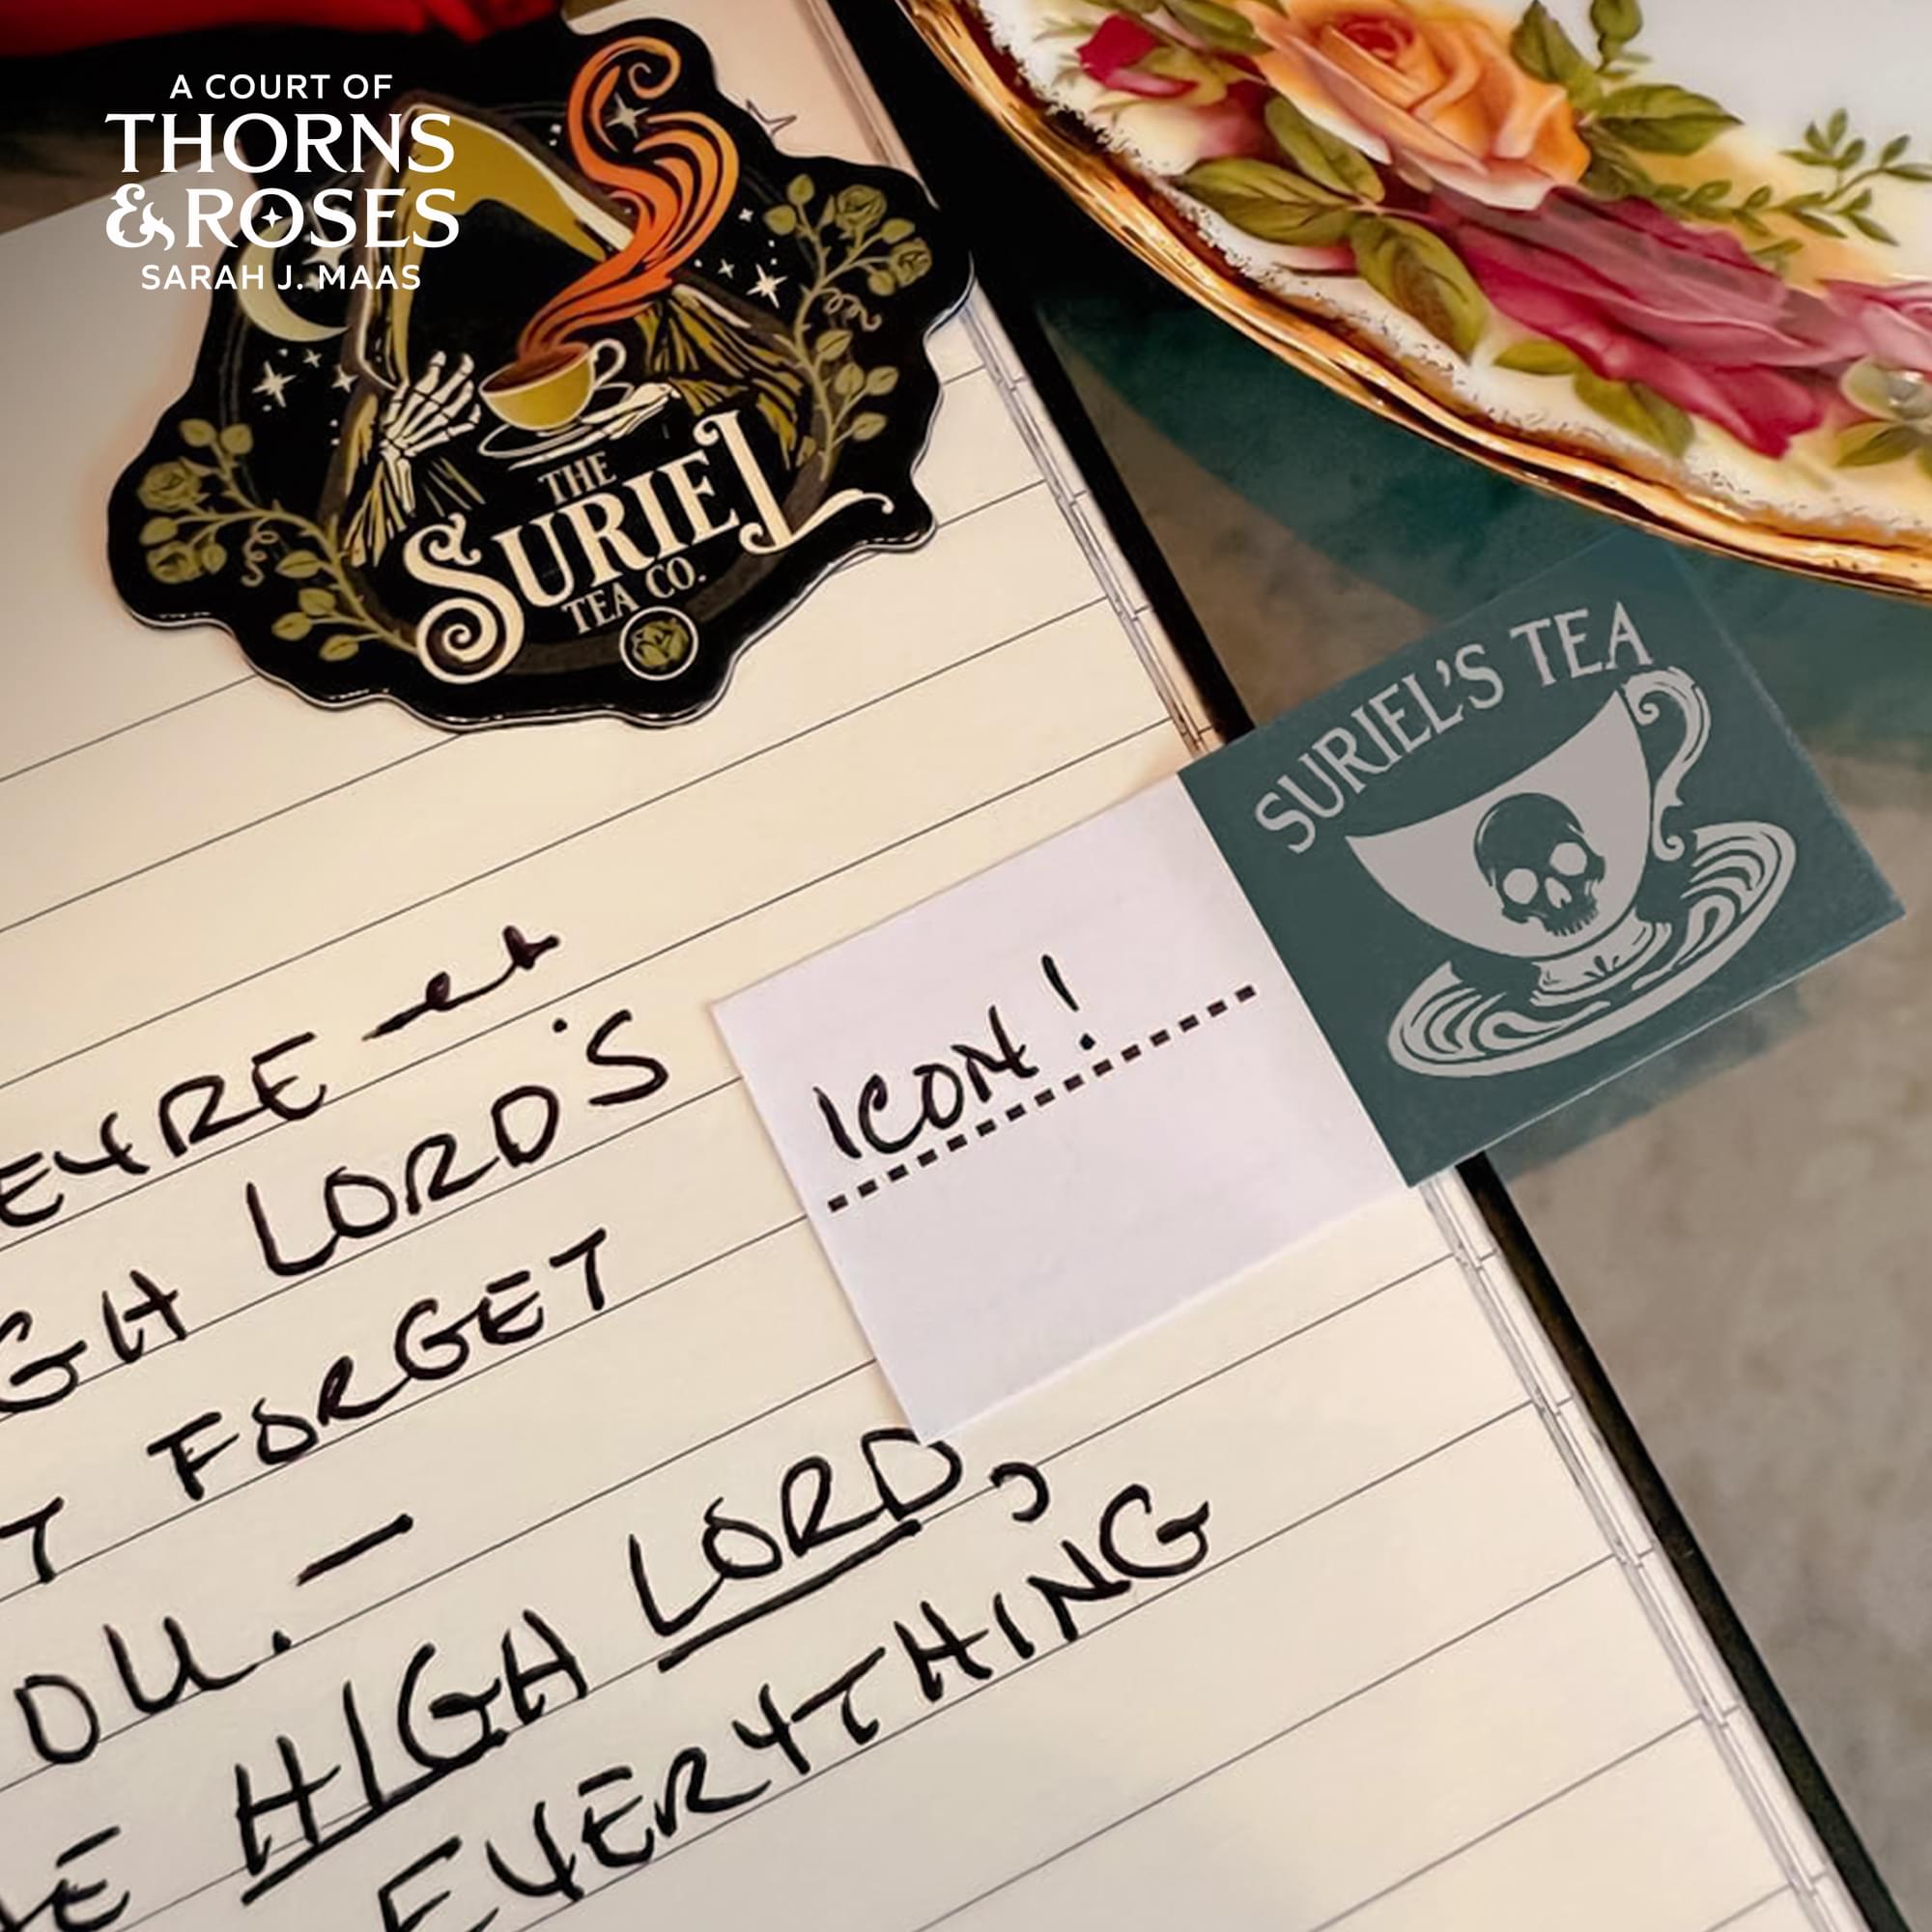 A COURT OF
THORNS
& ROSES
SARAH J. MAAS
THE
SURIEL
TEA CO.
SURIEL'S TEA
ICON!
EYRE
GH LORD'S
T FORGET
OU. —
E HIGH LORD,
EVERYTHING